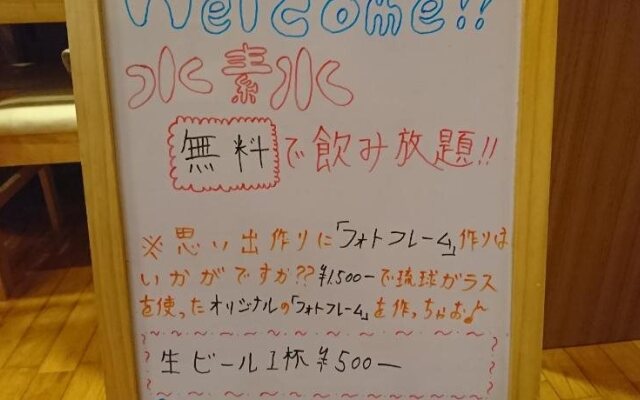 Welcome!!
水素水
無料で飲み放題!!
※思い出作りに「フォトフレーム」作りは
いかがですか??¥1.500ーで琉球ガラス
を使ったオリジナルの「フォトフレーム」を作っちゃお♪
生ビール1杯¥500ー